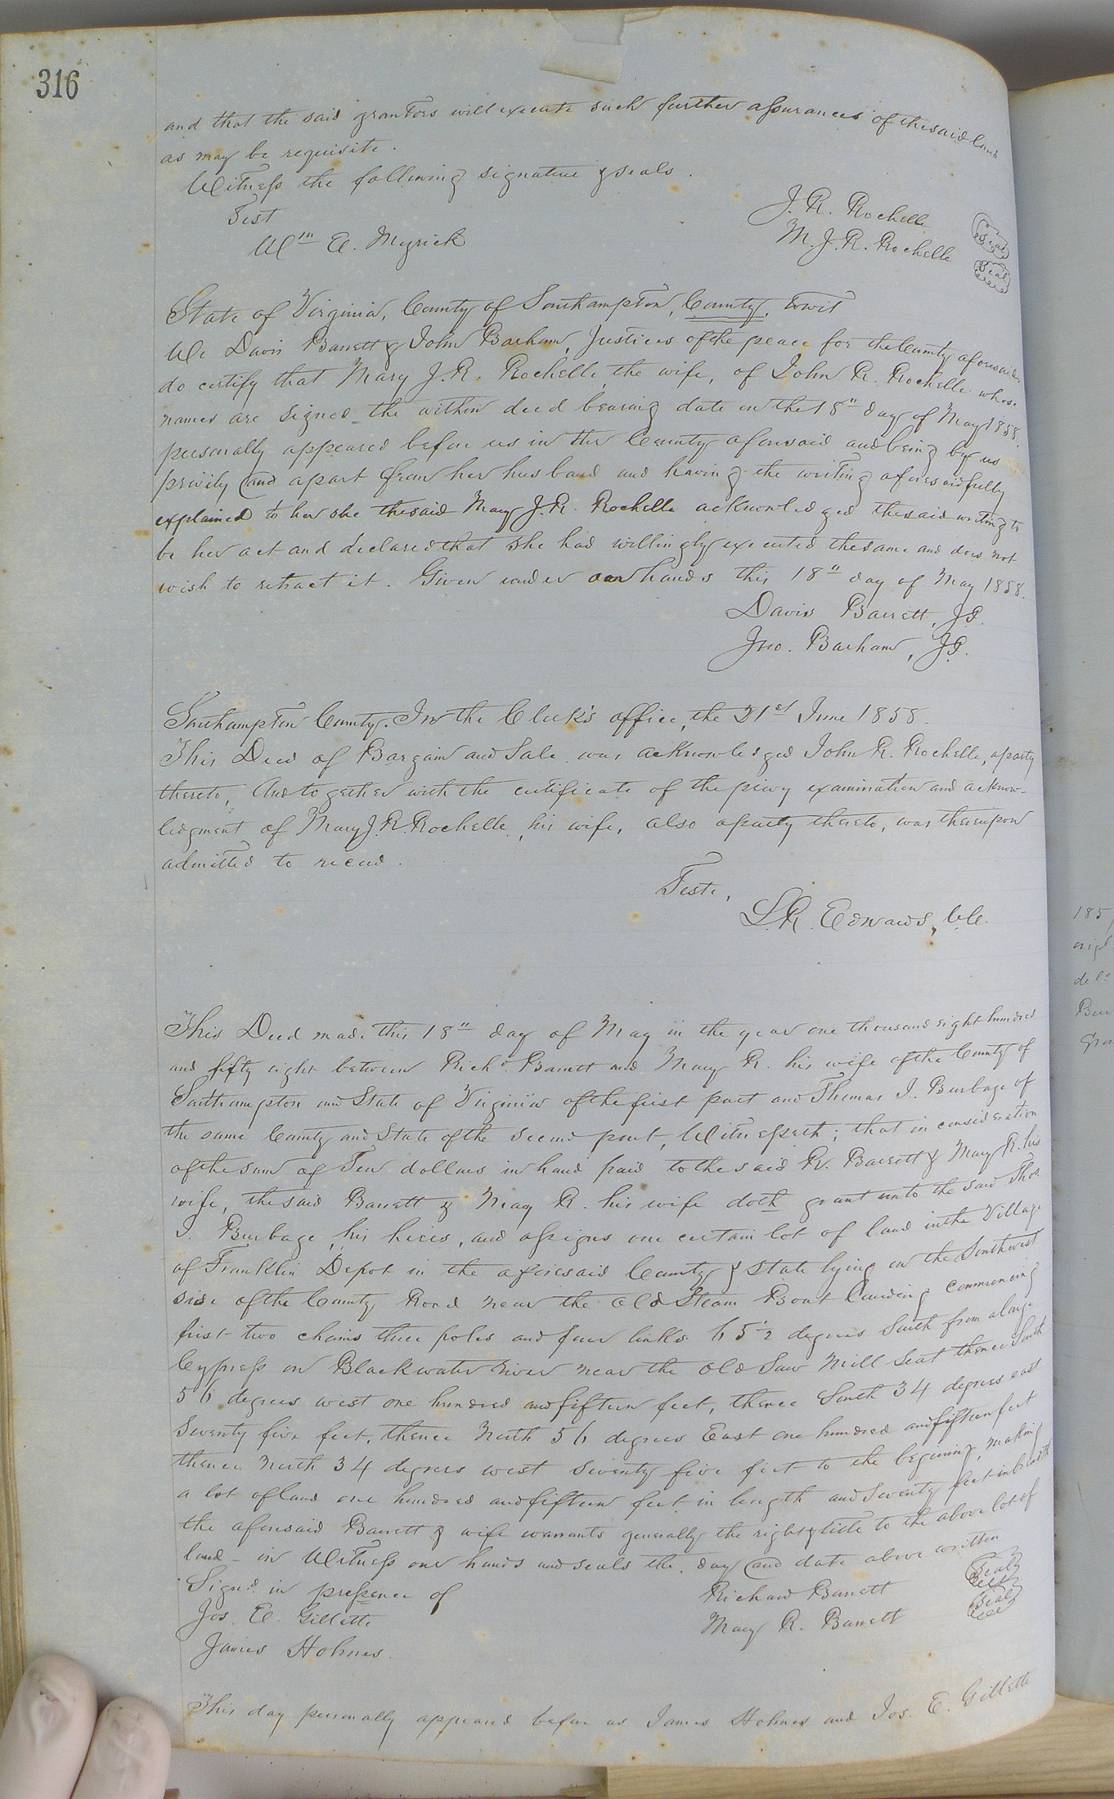 316
and that the said grantors will execute such further assurances of the said land
as may be requisite.
Witness the following signature & seals.
Test
J. R. Rochelle Seal
Wm E. Myrick
M. J. R. Rochelle Seal
State of Virginia, County of Southampton, County, towit
We Davis Barrett & John Barham, Justices of the peace for the County aforesaid
do certify that Mary J. R. Rochelle, the wife, of John R. Rochelle whose
names are signed the within deed bearing date on the 18th day of May 1858,
personally appeared before us in the County aforesaid and being by us
privily and apart from her husband and having the writing aforesaid fully
explained to her she the said Mary J. R. Rochelle acknowledged the said writing to
be her act and declared that she had willingly executed the same and does not
wish to retract it. Given under our hands this 18th day of May 1858.
Davis Barrett, JP.
Jno. Barham, JP.
Southampton County. In the Clerk's office, the 21st June 1858.
This Deed of Bargain and Sale was acknowledged John R. Rochelle, a party
thereto, And together with the certificate of the privy examination and acknow-
ledgment of Mary J. R. Rochelle, his wife, also a party thereto, was thereupon
admitted to record.
Teste,
L. R. Edwards, C.C.
This Deed made this 18th day of May in the year one thousand eight hundred
and fifty eight between Richd Barrett and Mary R. his wife of the County of
Southampton and State of Virginia of the first part and Thomas J. Burbage of
the same County and State of the Second part, Witnesseth; that in consideration
of the sum of Ten dollars in hand paid to the said R. Barrett & Mary R. his
wife, the said Barrett & Mary R. his wife doth grant unto the said Thos
J. Burbage, his heirs, and assigns one certain lot of land in the Village
of Franklin Depot in the aforesaid County & State lying on the Southwest
side of the County Road near the Old Steam Boat Landing commencing
first two chains three poles and four links 65½ degrees South from a large
Cypress on Blackwater River near the Old Saw Mill Seat thence South
56 degrees west one hundred and fifteen feet, thence South 34 degrees east
Seventy five feet, thence North 56 degrees East one hundred and fifteen feet
thence North 34 degrees west Seventy five feet to the begining, making
a lot of land one hundred and fifteen feet in length and Seventy feet in breadth
the aforesaid Barrett & wife warrants generally the right & title to the above lot of
land - in Witness our hands and seals the day and date above written
Signd in presence of
Richard Barrett Seal
Jos. E. Gillette
Mary R. Barrett Seal
James Holmes.
This day personally appeared before us James Holmes and Jos. E. Gillette
185